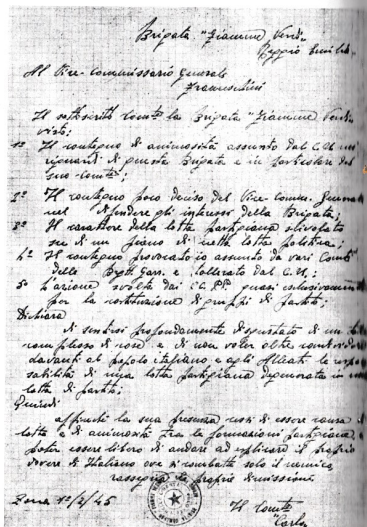 Brigata "Fiamme Verdi"
Reggio Emilia
Al Vice-Commissario Generale
Franceschini
Il sottoscritto Com.te la Brigata "Fiamme Verdi"
visti;
1° Il contegno di animosità assunto dal C.U. nei
riguardi di questa Brigata e in particolare del
suo Com.te;
2° Il contegno poco deciso del Vice-Comm. Generale
nel difendere gli interessi della Brigata;
3° Il carattere della lotta partigiana scivolato
su di un piano di netta lotta politica;
4° Il contegno provocatorio assunto da vari Com.ti
delle Bgt. Gar. e tollerato dal C.U.;
5° L'azione svolta dai quasi esclusivamente
per la costituzione di gruppi di Partito;
Dichiara
di sentirsi profondamente disgustato di un tal
complesso di cose e di non voler oltre condividere
davanti al popolo italiano e agli Alleati le respon
sabilità di una lotta partigiana degenerata in una
lotta di partito;
Quindi
affinchè la sua presenza cessi di essere causa di
lotta e di animosità tra le formazioni partigiane,
poter essere libero di andare ad esplicare il proprio
dovere di Italiano ove si combatte solo il nemico
rassegna le proprie dimissioni.
Zona 1°/2/45
Il Com.te
"Carlo"